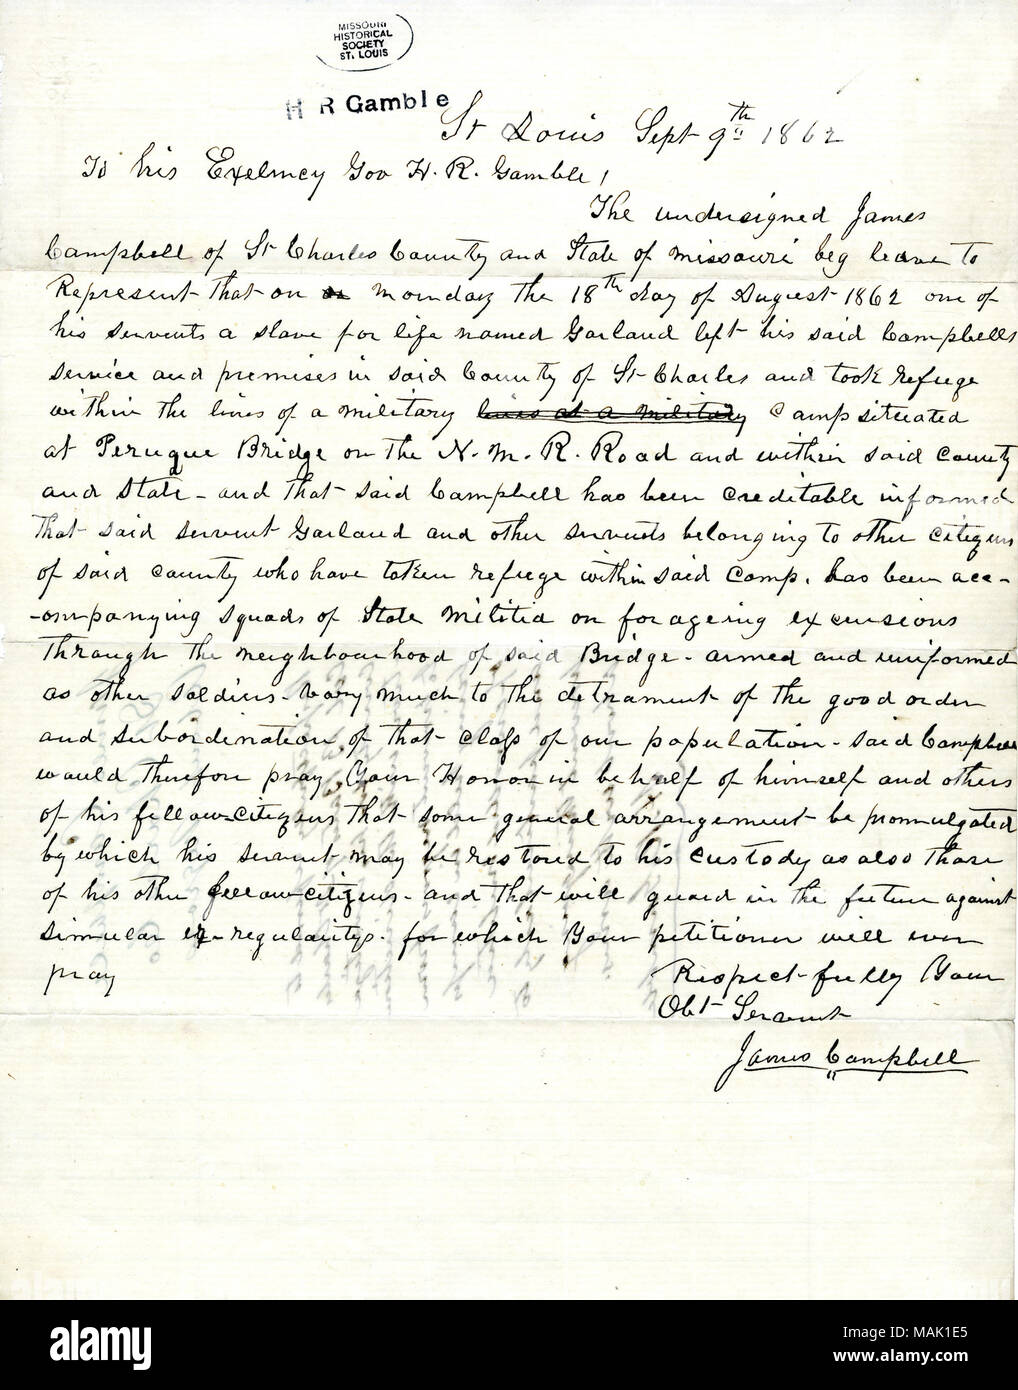 MISSOURI
HISTORICAL
SOCIETY
ST. LOUIS
H R Gamble
St Louis Sept 9th 1862
To his Exelency Gov H. R. Gamble,
The undersigned James
Campbell of St Charles County and State of Missouri beg leave to
Represent that on on Monday the 18th day of August 1862 one of
his servents a slave for life named Garland left his said Campbells
service and premises in said County of St Charles and took refuge
within the lines of a military lines at a military Camp situated
at Peruque Bridge on the N. M. R. Road and within said County
and State - and that said Campbell has been creditable informed
that said servent Garland and other servents belonging to other citizens
of said county who have taken refuge within said Camp. has been acc-
-ompanying squads of State Militia on foragering excursions
through the neighbourhood of said Bridge - armed and uniformed
as other soldiers - very much to the detrament of the good order
and subordination of that class of our population - said Campbell
would therefore pray Your Honor in behalf of himself and others
of his fellow citizens that some general arrangement be promulgated
by which his servent may be restored to his custody as also those
of his other fellow citizens - and that will guard in the future against
simular irregularitys. for which Your petitioner will ever
pray
Respect-fully Your
Obt Servent
James Campbell
alamy
a
alamy
Image ID: MAK1E5
www.alamy.com